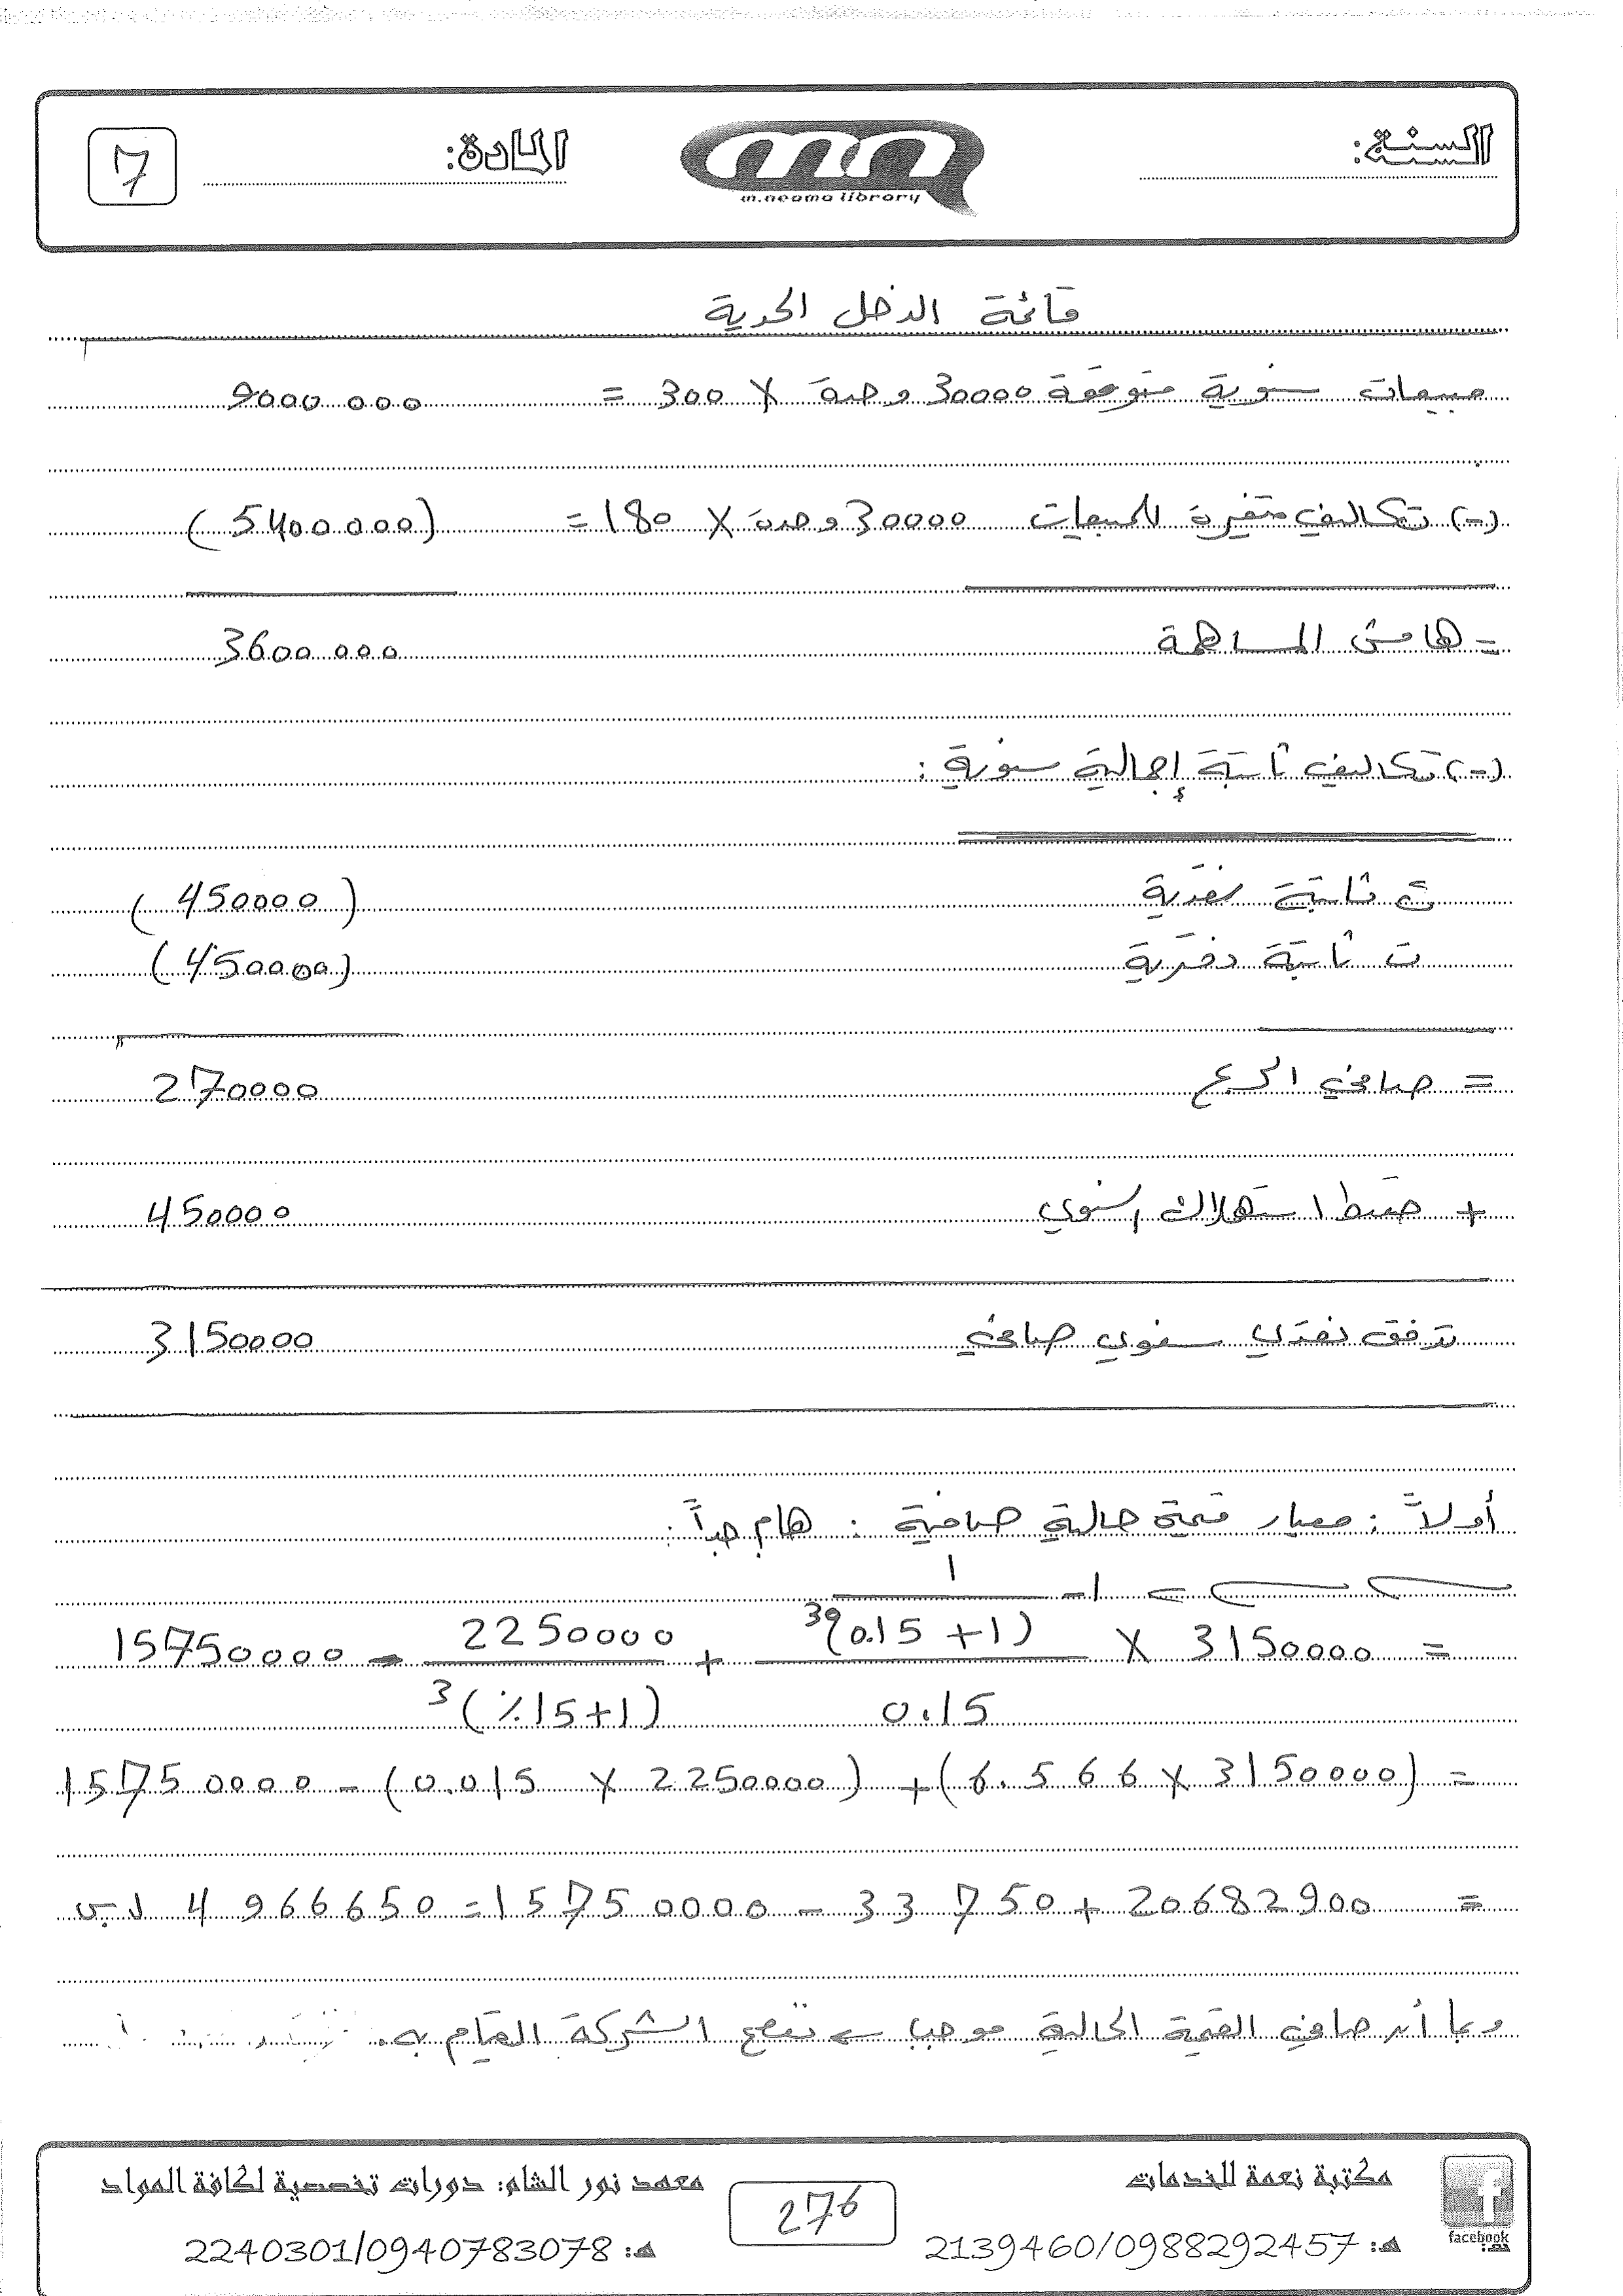 السنة:
m.neama library
المادة:
7
قائمة الدخل الحدية
مبيعات سنوية متوقعة 30000 وحدة X 300 = 9000 000
(-) تكاليف متغيرة للمبيعات 30000 وحدة X 180 = (5400000)
= هامش المساهمة 3600 000
(-) تكاليف ثابتة إجمالية سنوية :
ت ثابتة نقدية (450000)
ت ثابتة دفترية (450000)
= صافي الربح 270000
+ قسط استهلاك سنوي 450000
تدفق نقدي سنوي صافي 3150000
أولاً : معيار قيمة حالية صافية : هام جداً :
= 3150000 X (1 - 1 / (1 + 0.15)^30) / 0.15 + 2250000 / (1+15%)^3 - 15750000
= (3150000 X 6.566) + (2250000 X 0.015) - 15750000
= 20682900 + 33750 - 15750000 = 4966650 ل.س
وبما أن صافي القيمة الحالية موجب ← تنصح الشركة القيام به.
مكتبة نعمة للخدمات
هـ: 2139460/0988292457
276
معهد نور الشام: دورات تخصصية لكافة المواد
هـ: 2240301/0940783078
facebook